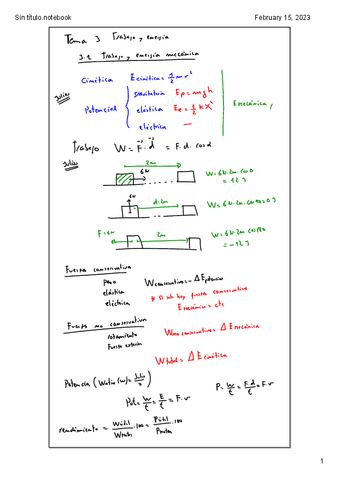 Sin título.notebook February 15, 2023
Tema 3 Trabajo y energía
3.1 Trabajo y energía mecánica
Cinética E cinética = 1/2 m v²
Julios
Potencial
gravitatoria Ep = m g h
elástica Ee = 1/2 k x²
eléctrica —
E mecánica
Trabajo W = F · d = F · d · cos α
Julios
2m
6N
W = 6N · 2m · cos 0
= 12 J
6N
d: 2m
W = 6N · 2m · cos 90 = 0 J
F = 6N
2m
W = 6N · 2m cos 180
= -12 J
Fuerza conservativa
peso
elástica
eléctrica
W conservativo = - Δ E potencial
* Si solo hay fuerzas conservativas
E mecánica = cte
Fuerza no conservativa
rozamiento
Fuerza exterior
W no conservativo = Δ E mecánica
W total = Δ E cinética
Potencia (Watio (W) = Julio/s)
Pot = W/t = E/t = F · v
P = W/t = F·d/t = F·v
rendimiento = W útil/W total · 100 = P útil/P total · 100
1